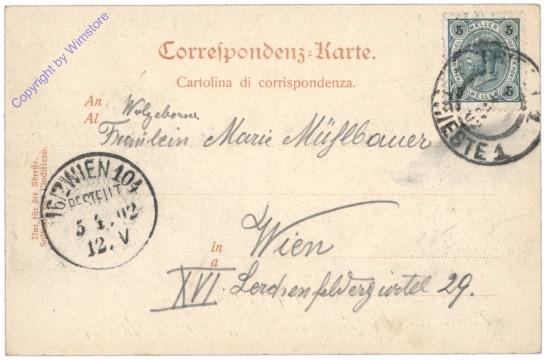 Copyright by Wimstore
Correspondenz-Karte.
Cartolina di corrispondenza.
5 HELLER 5
5 HELLER 5
TRIESTE 1
An Wolgeborne
Al
Fräulein Marie Mühlbauer
16/2 WIEN 101
BESTELLT
5 4 02
12. V
Nur für die Adresse.
in Wien
a
XVI. Lerchenfelderzirtel 29.